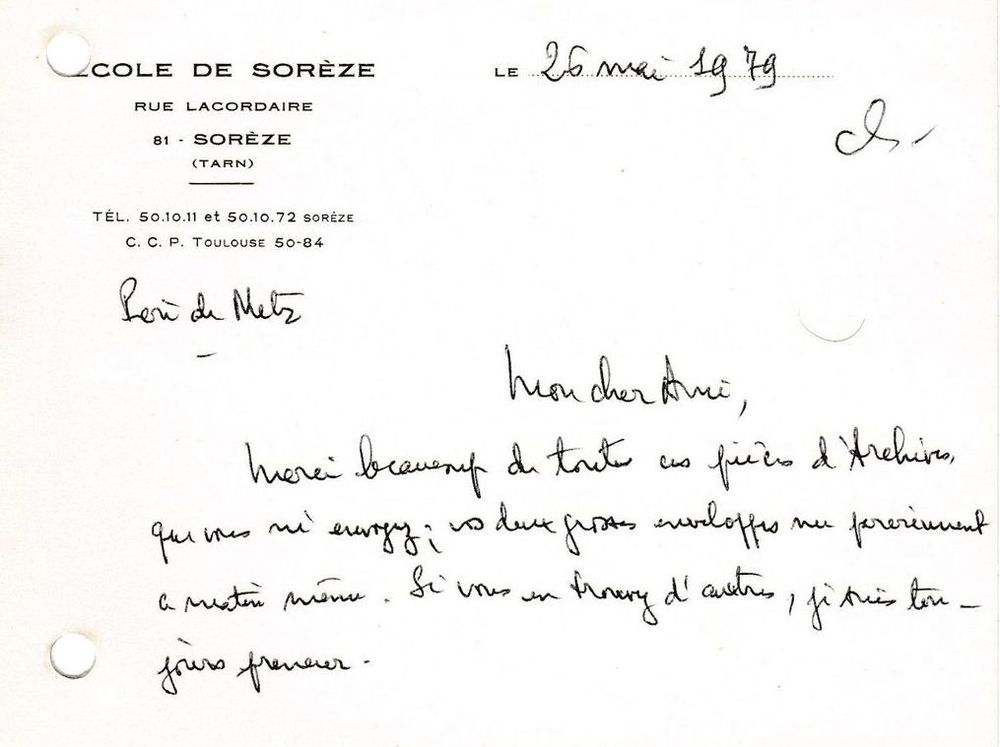 ÉCOLE DE SORÈZE
RUE LACORDAIRE
81 - SORÈZE
(TARN)
TÉL. 50.10.11 et 50.10.72 SORÈZE
C. C. P. TOULOUSE 50-84
LE 26 mai 1979
de Metz
Mon cher Ami,
Merci beaucoup de toutes ces pièces d'Archives,
que vous m'envoyez ; vos deux grosses enveloppes me parviennent
ce matin même. Si vous en trouvez d'autres, je suis tou-
jours preneur.